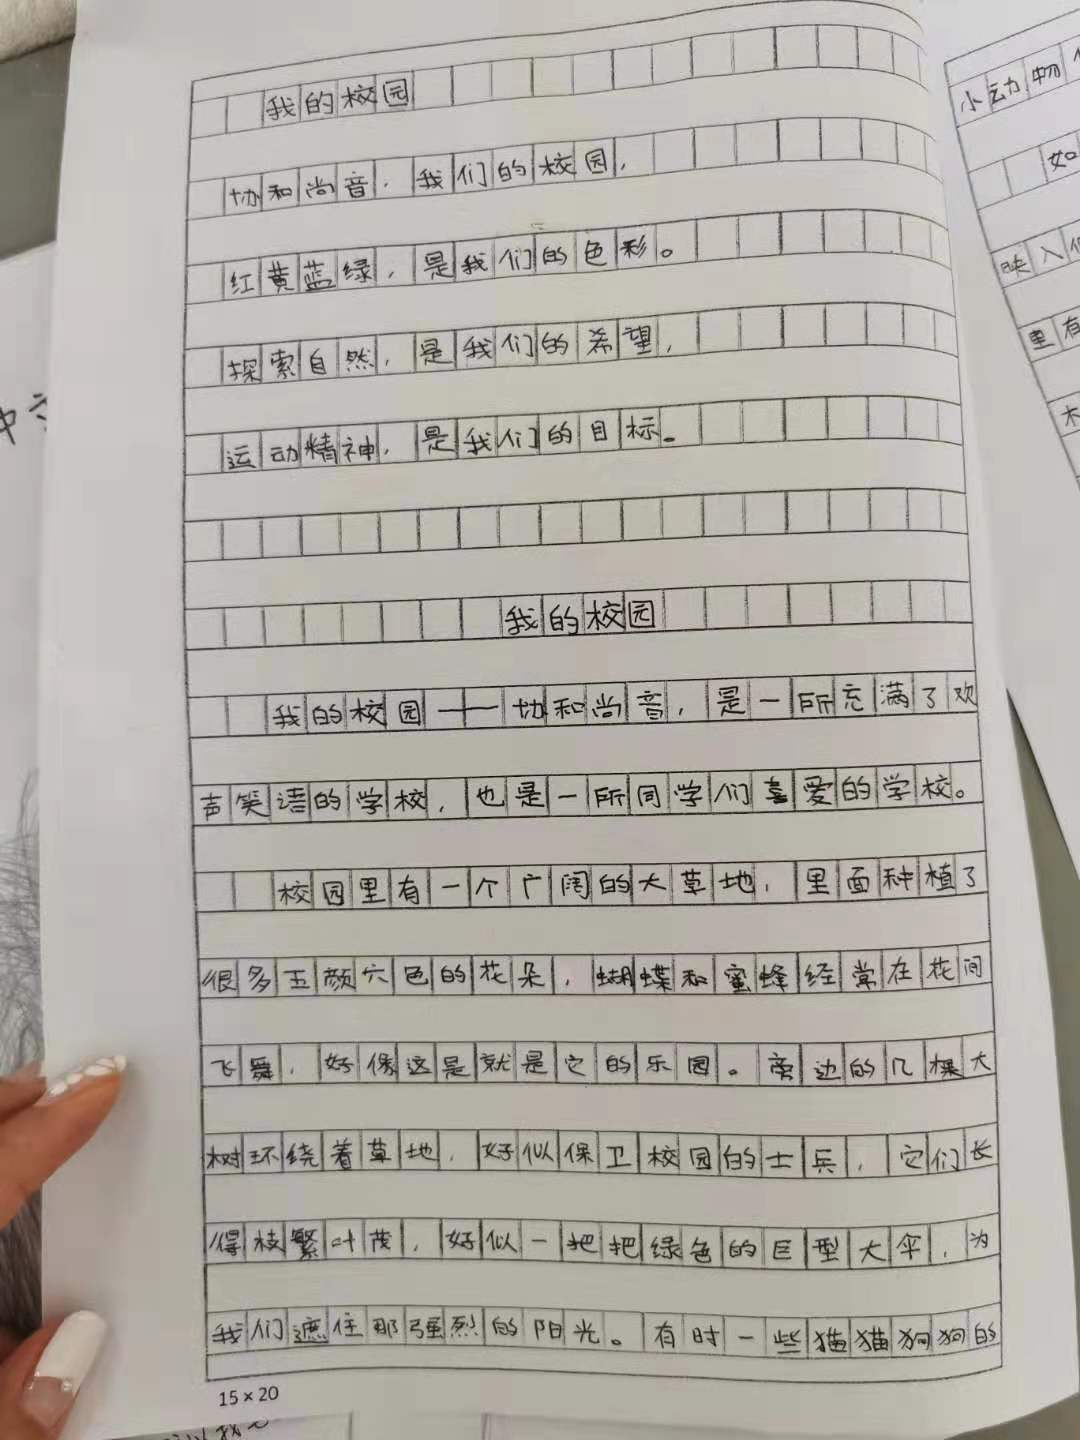 我的校园
协和尚音，我们的校园，
红黄蓝绿，是我们的色彩。
探索自然，是我们的希望，
运动精神，是我们的目标。
我的校园
我的校园——协和尚音，是一所充满了欢
声笑语的学校，也是一所同学们喜爱的学校。
校园里有一个广阔的大草地，里面种植了
很多五颜六色的花朵，蝴蝶和蜜蜂经常在花间
飞舞，好像这是就是它的乐园。旁边的几棵大
树环绕着草地，好似保卫校园的士兵，它们长
得枝繁叶茂，好似一把把绿色的巨型大伞，为
我们遮住那强烈的阳光。有时一些猫猫狗狗的
15×20
小动物
如
映入
里有